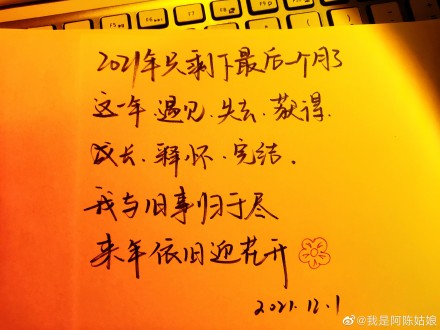 2021年只剩下最后一个月了
这一年.遇见.失去.获得.
成长.释怀.完结.
我与旧事归于尽
来年依旧迎花开
2021.12.1
@我是阿陈姑娘